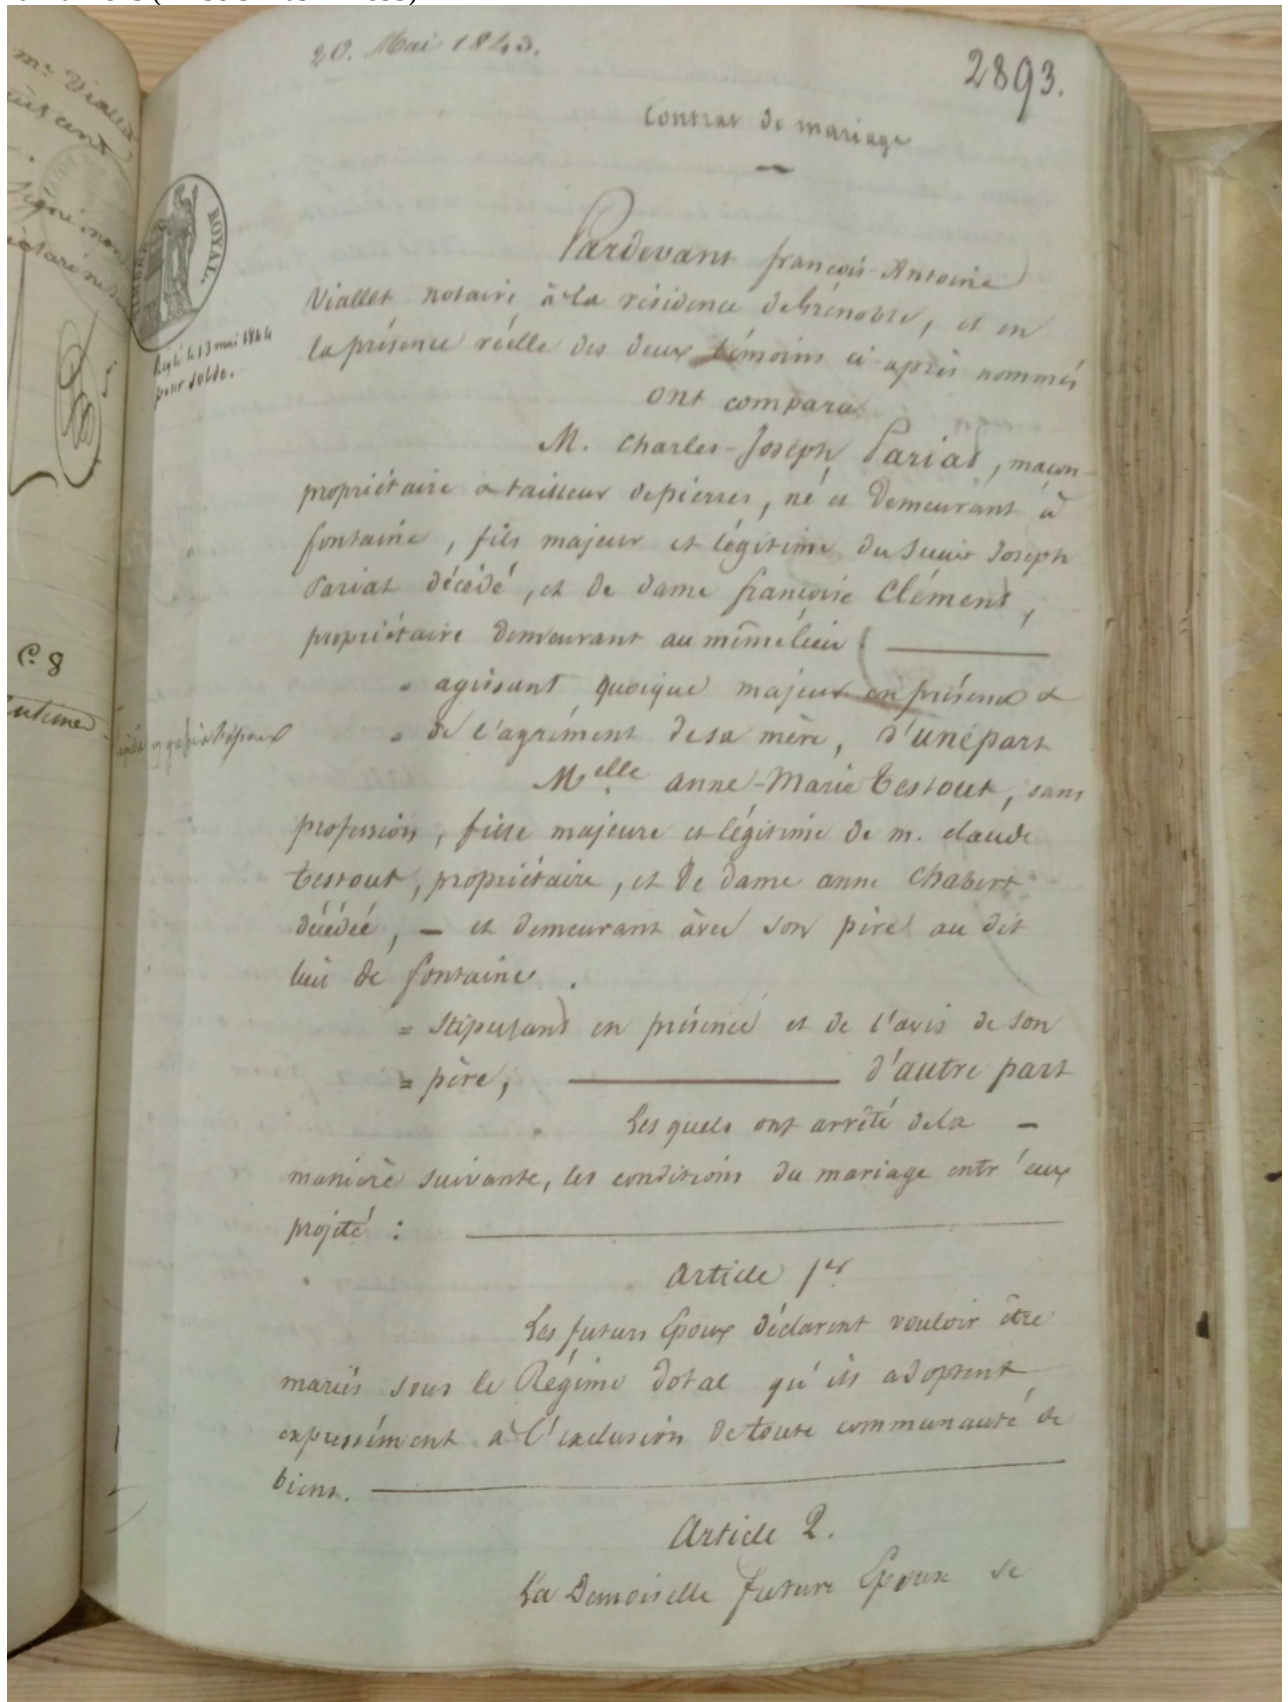 20. Mai 1843.
2893.
Contrat de mariage
Pardevant françois-Antoine
Viallet notaire à la résidence de Grénoble, et en
la présence réelle des deux témoins ci-après nommés
ont comparu
M. Charles-Joseph Pariat, maçon-
propriétaire & tailleur de pierres, né et demeurant à
fontaine, fils majeur et légitime du Sieur Joseph
Pariat décédé, et de dame françoise Clément,
propriétaire demeurant au même lieu
= agissant quoique majeur en présence &
= de l'agrément de sa mère, d'une part
Melle anne-Marie Testout, sans
profession, fille majeure et légitime de m. claude
Testout, propriétaire, et de dame anne Chabert
décédée, — et demeurant avec son père au dit
lieu de fontaine.
= Stipulant en présence et de l'avis de son
= père, d'autre part
Les quels ont arrêté de la —
manière suivante, les conditions du mariage entr'eux
projeté :
Article 1er
Les futurs Epoux déclarent vouloir être
mariés sous le Régime dotal qu'ils adoptent
expressément à l'exclusion de toute communauté de
biens.
Article 2.
La Demoiselle future Epouse se
ROYAL.
le 13 mai 1844
pour solde.
me Viallet
C. 8